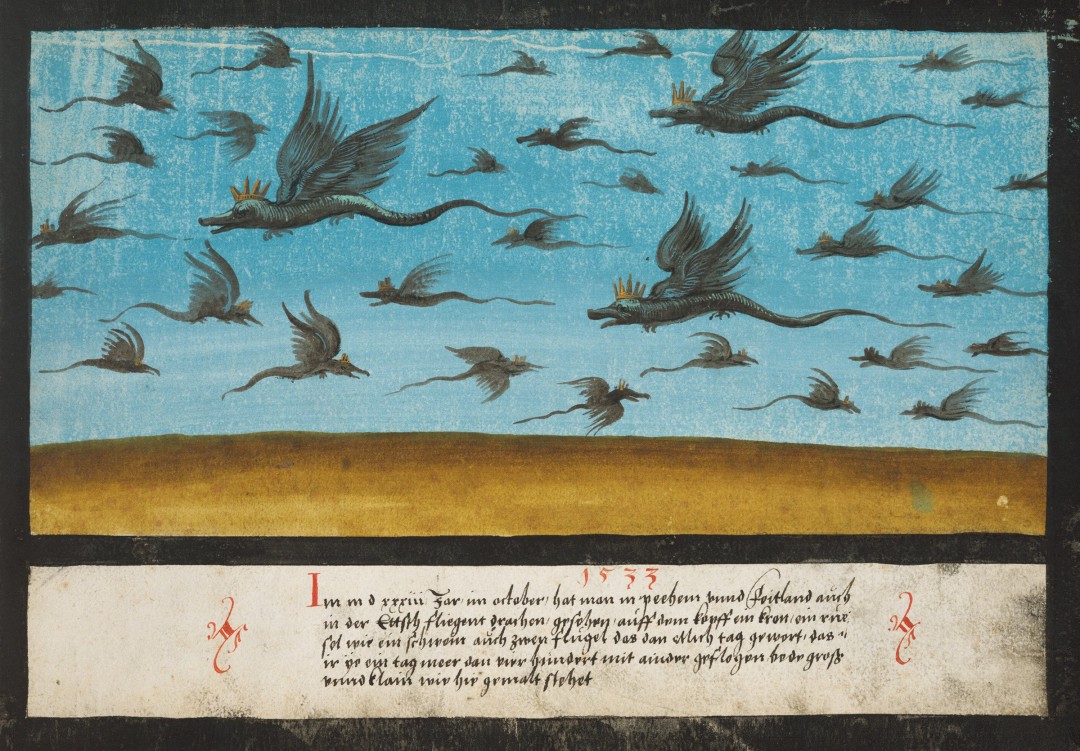 1533
Im m d xxxiii Jar im october, hat man in pechem vnnd Foitland auch
in der Ettsch fliegent drachen, gesehen, auff dem kopff ein kron, ein rue
sel wie ein schwein auch zwen flugel das dan etlich tag gewert, das
ir ye ein tag meer dan vier hundert mit ainder geflogen bede gross
vnnd klain wie hie gemalt stehet